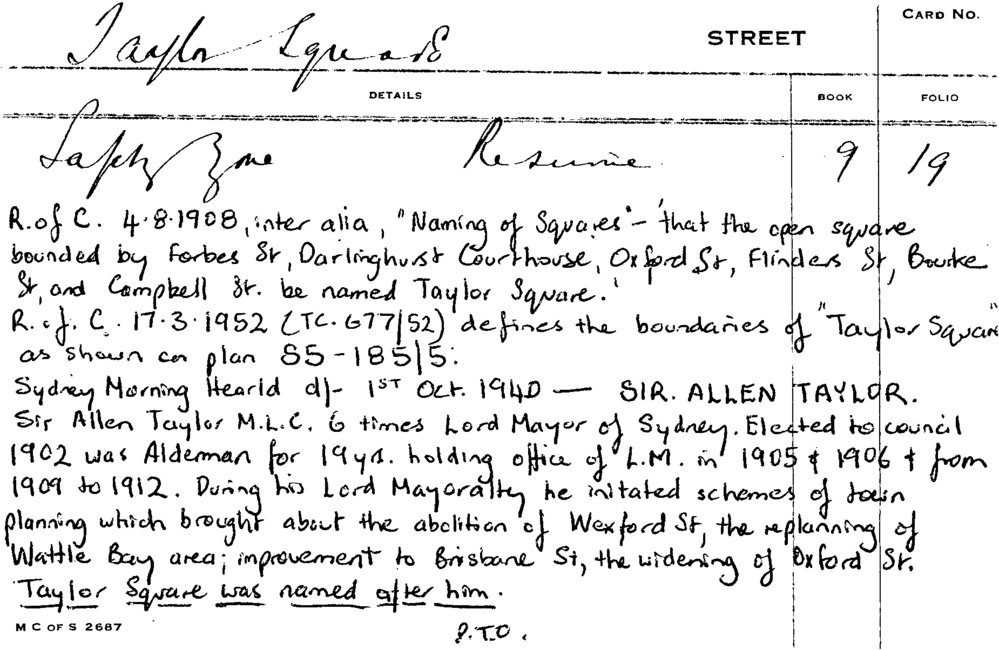 CARD NO.
Taylor Square STREET
DETAILS BOOK FOLIO
Safety Zone Resume 9 19
R. of C. 4.8.1908, inter alia, "Naming of Squares" - 'that the open square
bounded by Forbes St, Darlinghurst Courthouse, Oxford St, Flinders St, Bourke
St, and Campbell St. be named Taylor Square.'
R. of C. 17.3.1952 (TC. 677/52) defines the boundaries of "Taylor Square"
as shown on plan S5-185/5:
Sydney Morning Hearld d/- 1ST Oct. 1940 — SIR. ALLEN TAYLOR.
Sir Allen Taylor M.L.C. 6 times Lord Mayor of Sydney. Elected to council
1902 was Alderman for 19yrs. holding office of L.M. in 1905 & 1906 & from
1909 to 1912. During his Lord Mayoralty he initated schemes of town
planning which brought about the abolition of Wexford St, the replanning of
Wattle Bay area; improvement to Brisbane St, the widening of Oxford St.
Taylor Square was named after him.
M C OF S 2687 P.T.O.